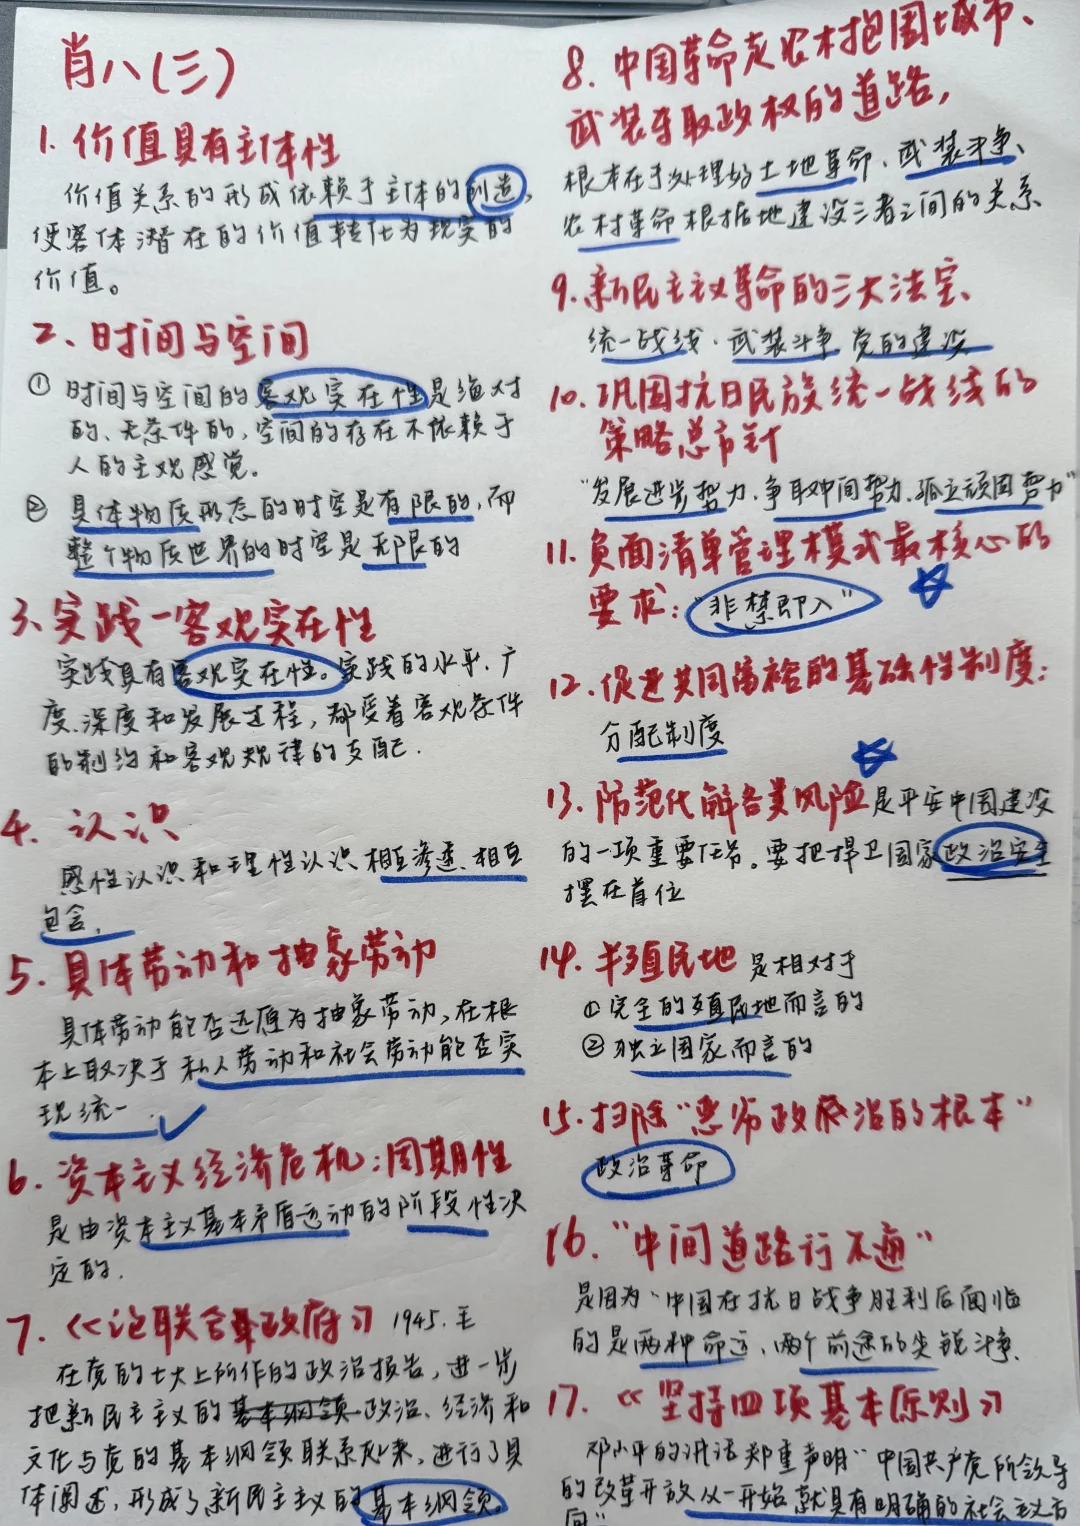 肖八(三)
1. 价值具有主体性
价值关系的形成依赖于主体的创造,
使客体潜在的价值转化为现实的
价值。
2、时间与空间
① 时间与空间的客观实在性是绝对
的、无条件的,空间的存在不依赖于
人的主观感觉。
② 具体物质形态的时空是有限的,而
整个物质世界的时空是无限的
3、实践-客观实在性
实践具有客观实在性。实践的水平、广
度、深度和发展过程,都受着客观条件
的制约和客观规律的支配.
4. 认识
感性认识和理性认识相互渗透、相互
包含,
5. 具体劳动和抽象劳动
具体劳动能否还原为抽象劳动,在根
本上取决于私人劳动和社会劳动能否实
现统一.
6. 资本主义经济危机:周期性
是由资本主义基本矛盾运动的阶段性决
定的.
7.《论联合政府》1945.毛
在党的七大上所作的政治报告,进一步
把新民主主义的基本纲领 政治、经济和
文化与党的基本纲领联系起来,进行了具
体阐述,形成了新民主主义的基本纲领。
8. 中国革命走农村包围城市、
武装夺取政权的道路,
根本在于处理好土地革命、武装斗争、
农村革命根据地建设三者之间的关系
9.新民主主义革命的三大法宝、
统一战线、武装斗争 党的建设
10.巩固抗日民族统一战线的
策略总方针
“发展进步势力、争取中间势力、孤立顽固势力”
11.负面清单管理模式最核心的
要求:“非禁即入”
12.促进共同富裕的基础性制度:
分配制度
13.防范化解各类风险是平安中国建设
的一项重要任务。要把捍卫国家政治安全
摆在首位
14.半殖民地 是相对于
①完全的殖民地而言的
②独立国家而言的
15.扫除“恶劣政府治的根本”
政治革命
16.“中间道路行不通”
是因为“中国在抗日战争胜利后面临
的是两种命运、两个前途的尖锐斗争.
17.《坚持四项基本原则》
邓小平的讲话郑重声明“中国共产党所领导
的改革开放从一开始就具有明确的社会主义方
向”